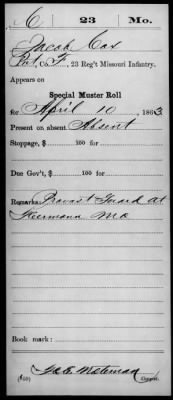 C 23 Mo.
Jacob Cox
Pvt., Co. F, 23 Reg't Missouri Infantry.
Appears on
Special Muster Roll
for April 10, 1863.
Present or absent Absent
Stoppage, $ 100 for
Due Gov't, $ 100 for
Remarks: Provost Guard at
Hermann Mo
Book mark:
(858) Copyist.